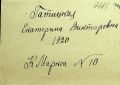 Гатицкая
Екатерина Викторовна
1920
К Маркса № 10